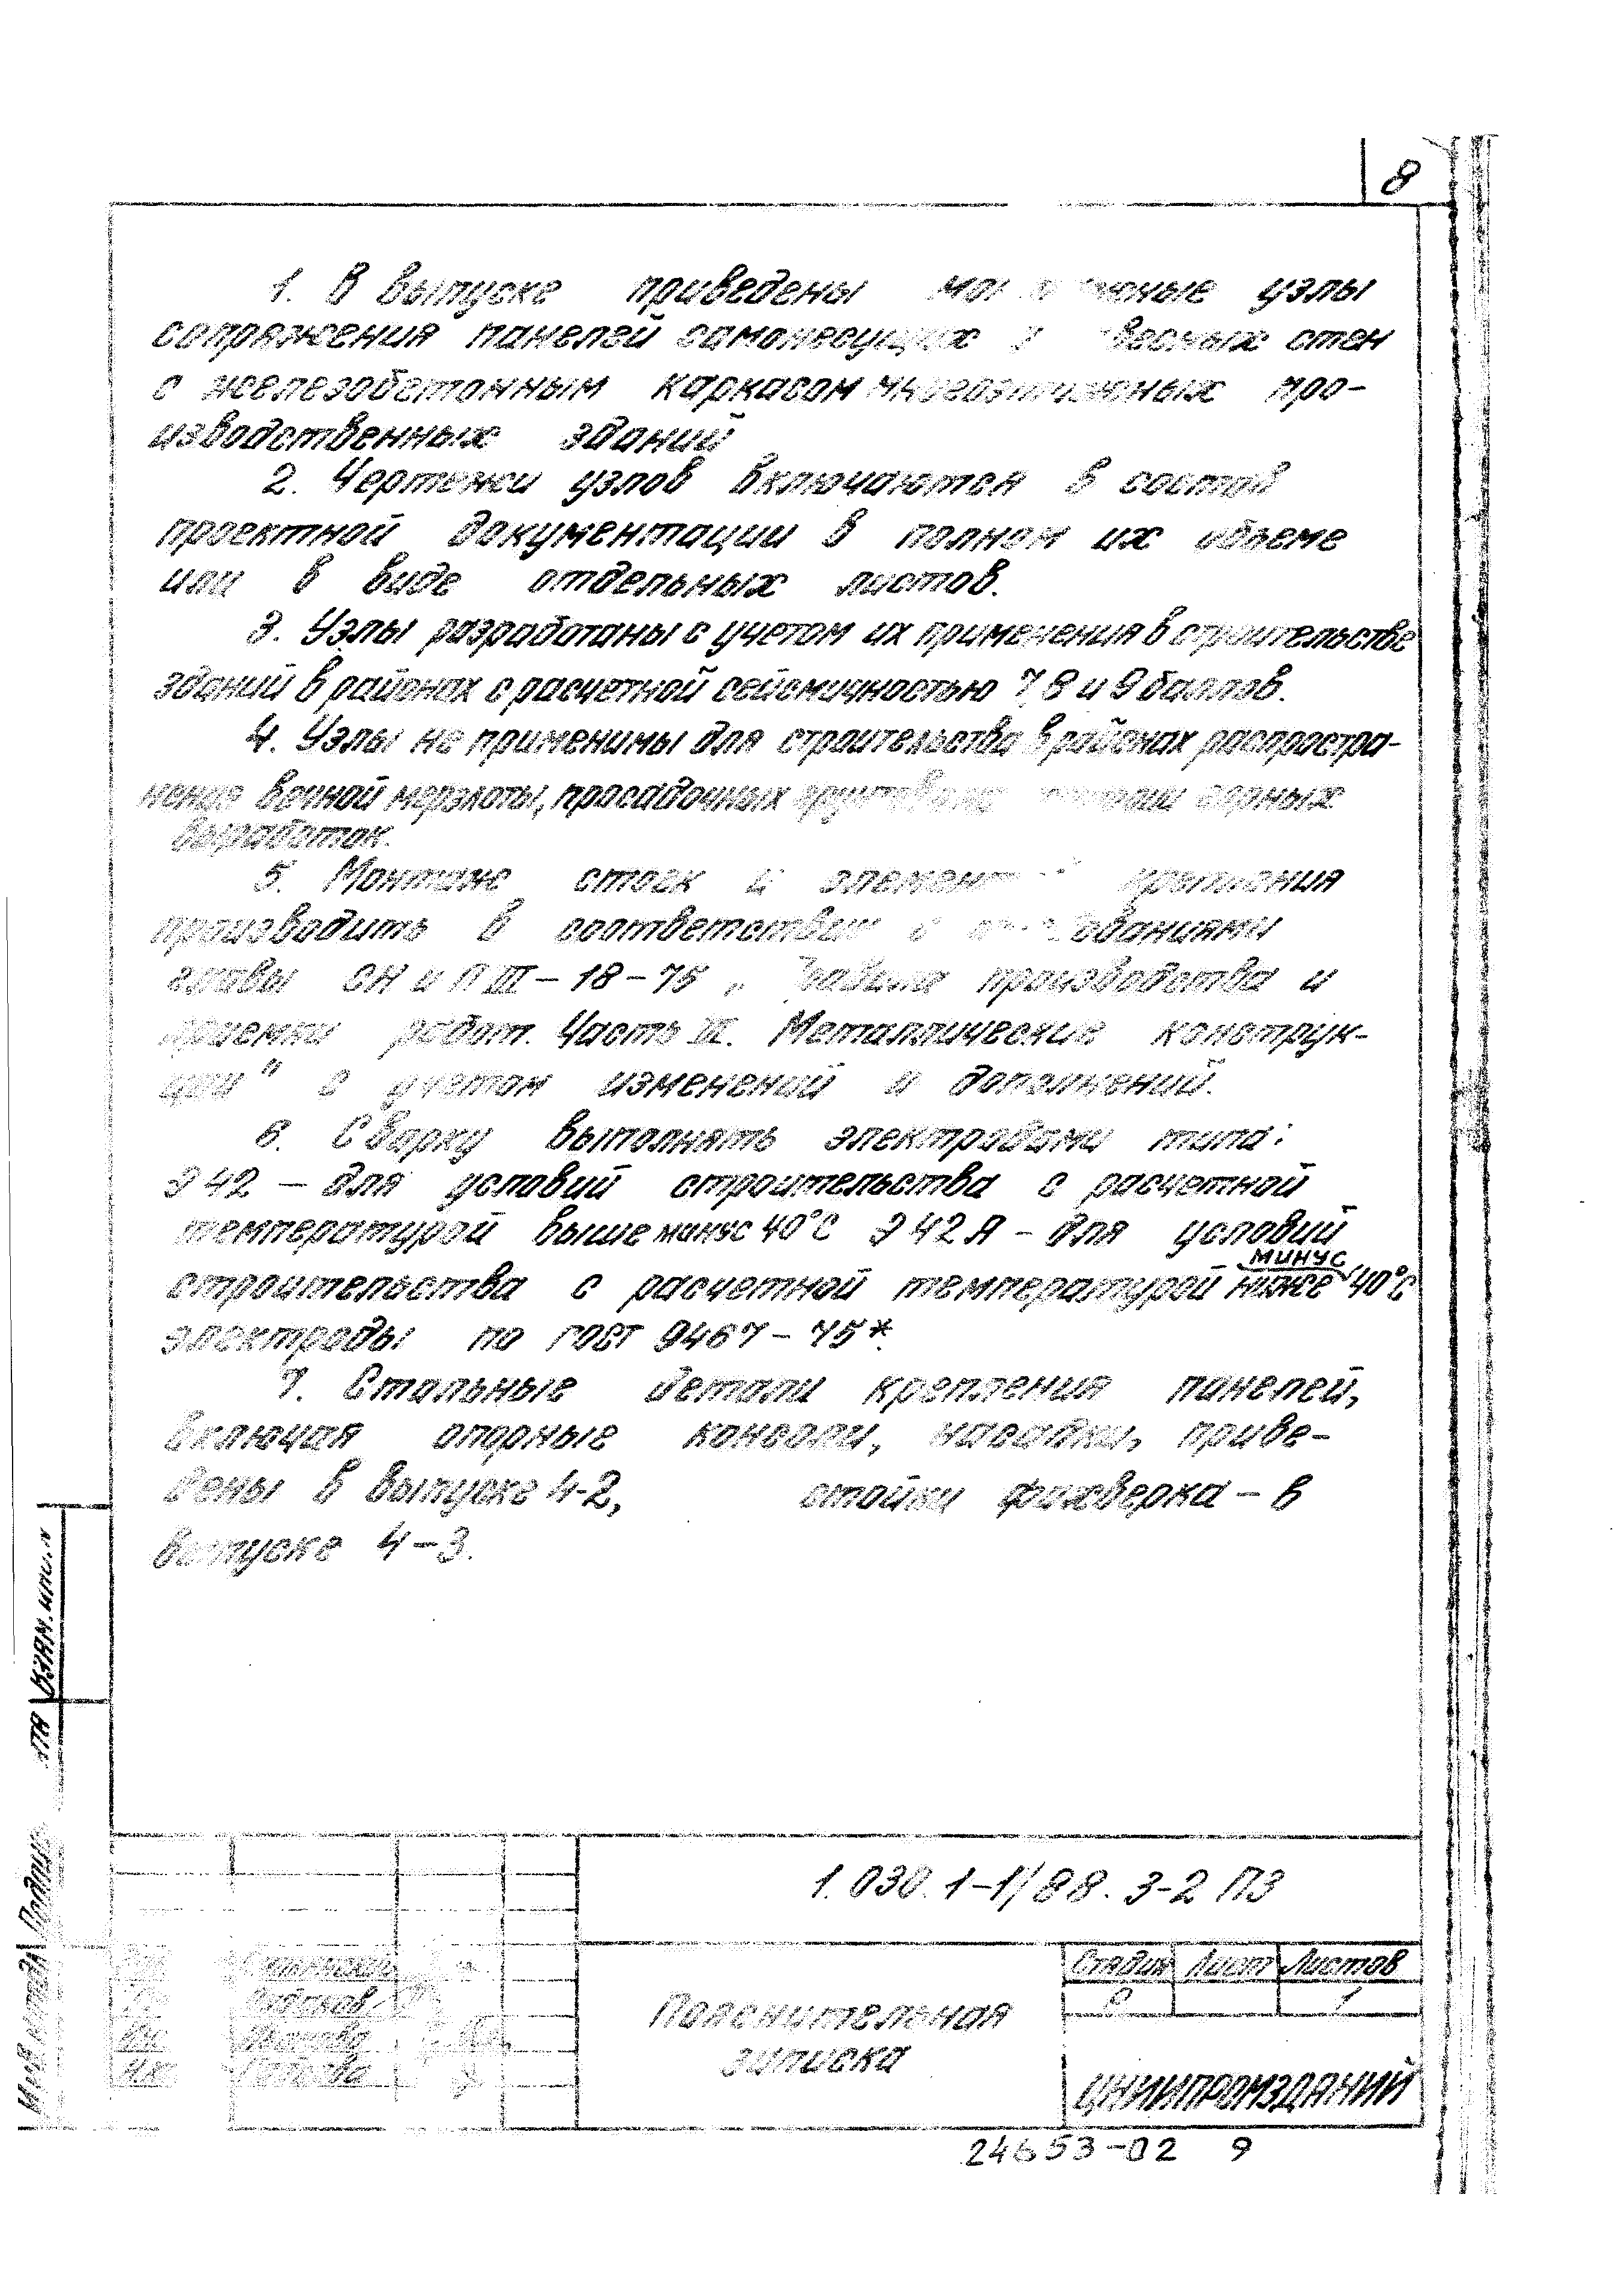 8
1. В выпуске приведены узлы
сопряжения панелей самонесущих стен
с железобетонным каркасом многоэтажных про-
изводственных зданий
2. Чертежи узлов включаются в состав
проектной документации в полном их объеме
или в виде отдельных листов.
3. Узлы разработаны с учетом их применения в строительстве
зданий в районах с расчетной сейсмичностью 7,8 и 9 баллов.
4. Узлы не применимы для строительства в районах распростра-
нения вечной мерзлоты, просадочных горных
выработок.
5. Монтаж стоек и крепления
производить в соответствии с требованиями
главы СН и П III – 18 – 75 „Правила производства и
приемки работ. Часть III. Металлические конструк-
ции" с учетом изменений и дополнений.
6. Сварку выполнять электродами типа:
Э 42 – для условий строительства с расчетной
температурой выше минус 40°С Э 42 А – для условий
минус
строительства с расчетной температурой ниже 40°С
электроды по ГОСТ 9467 – 75*.
7. Стальные детали крепления панелей,
включая опорные консоли, насадки, приве-
дены в выпуске 4-2, стойки фахверка – в
выпуске 4–3.
Взам. инв. №
Подпис
1.030.1–1/88.3-2 ПЗ
Стадия Лист Листов
Р 1
Пояснительная
записка
ЦНИИПРОМЗДАНИЙ
24653-02 9